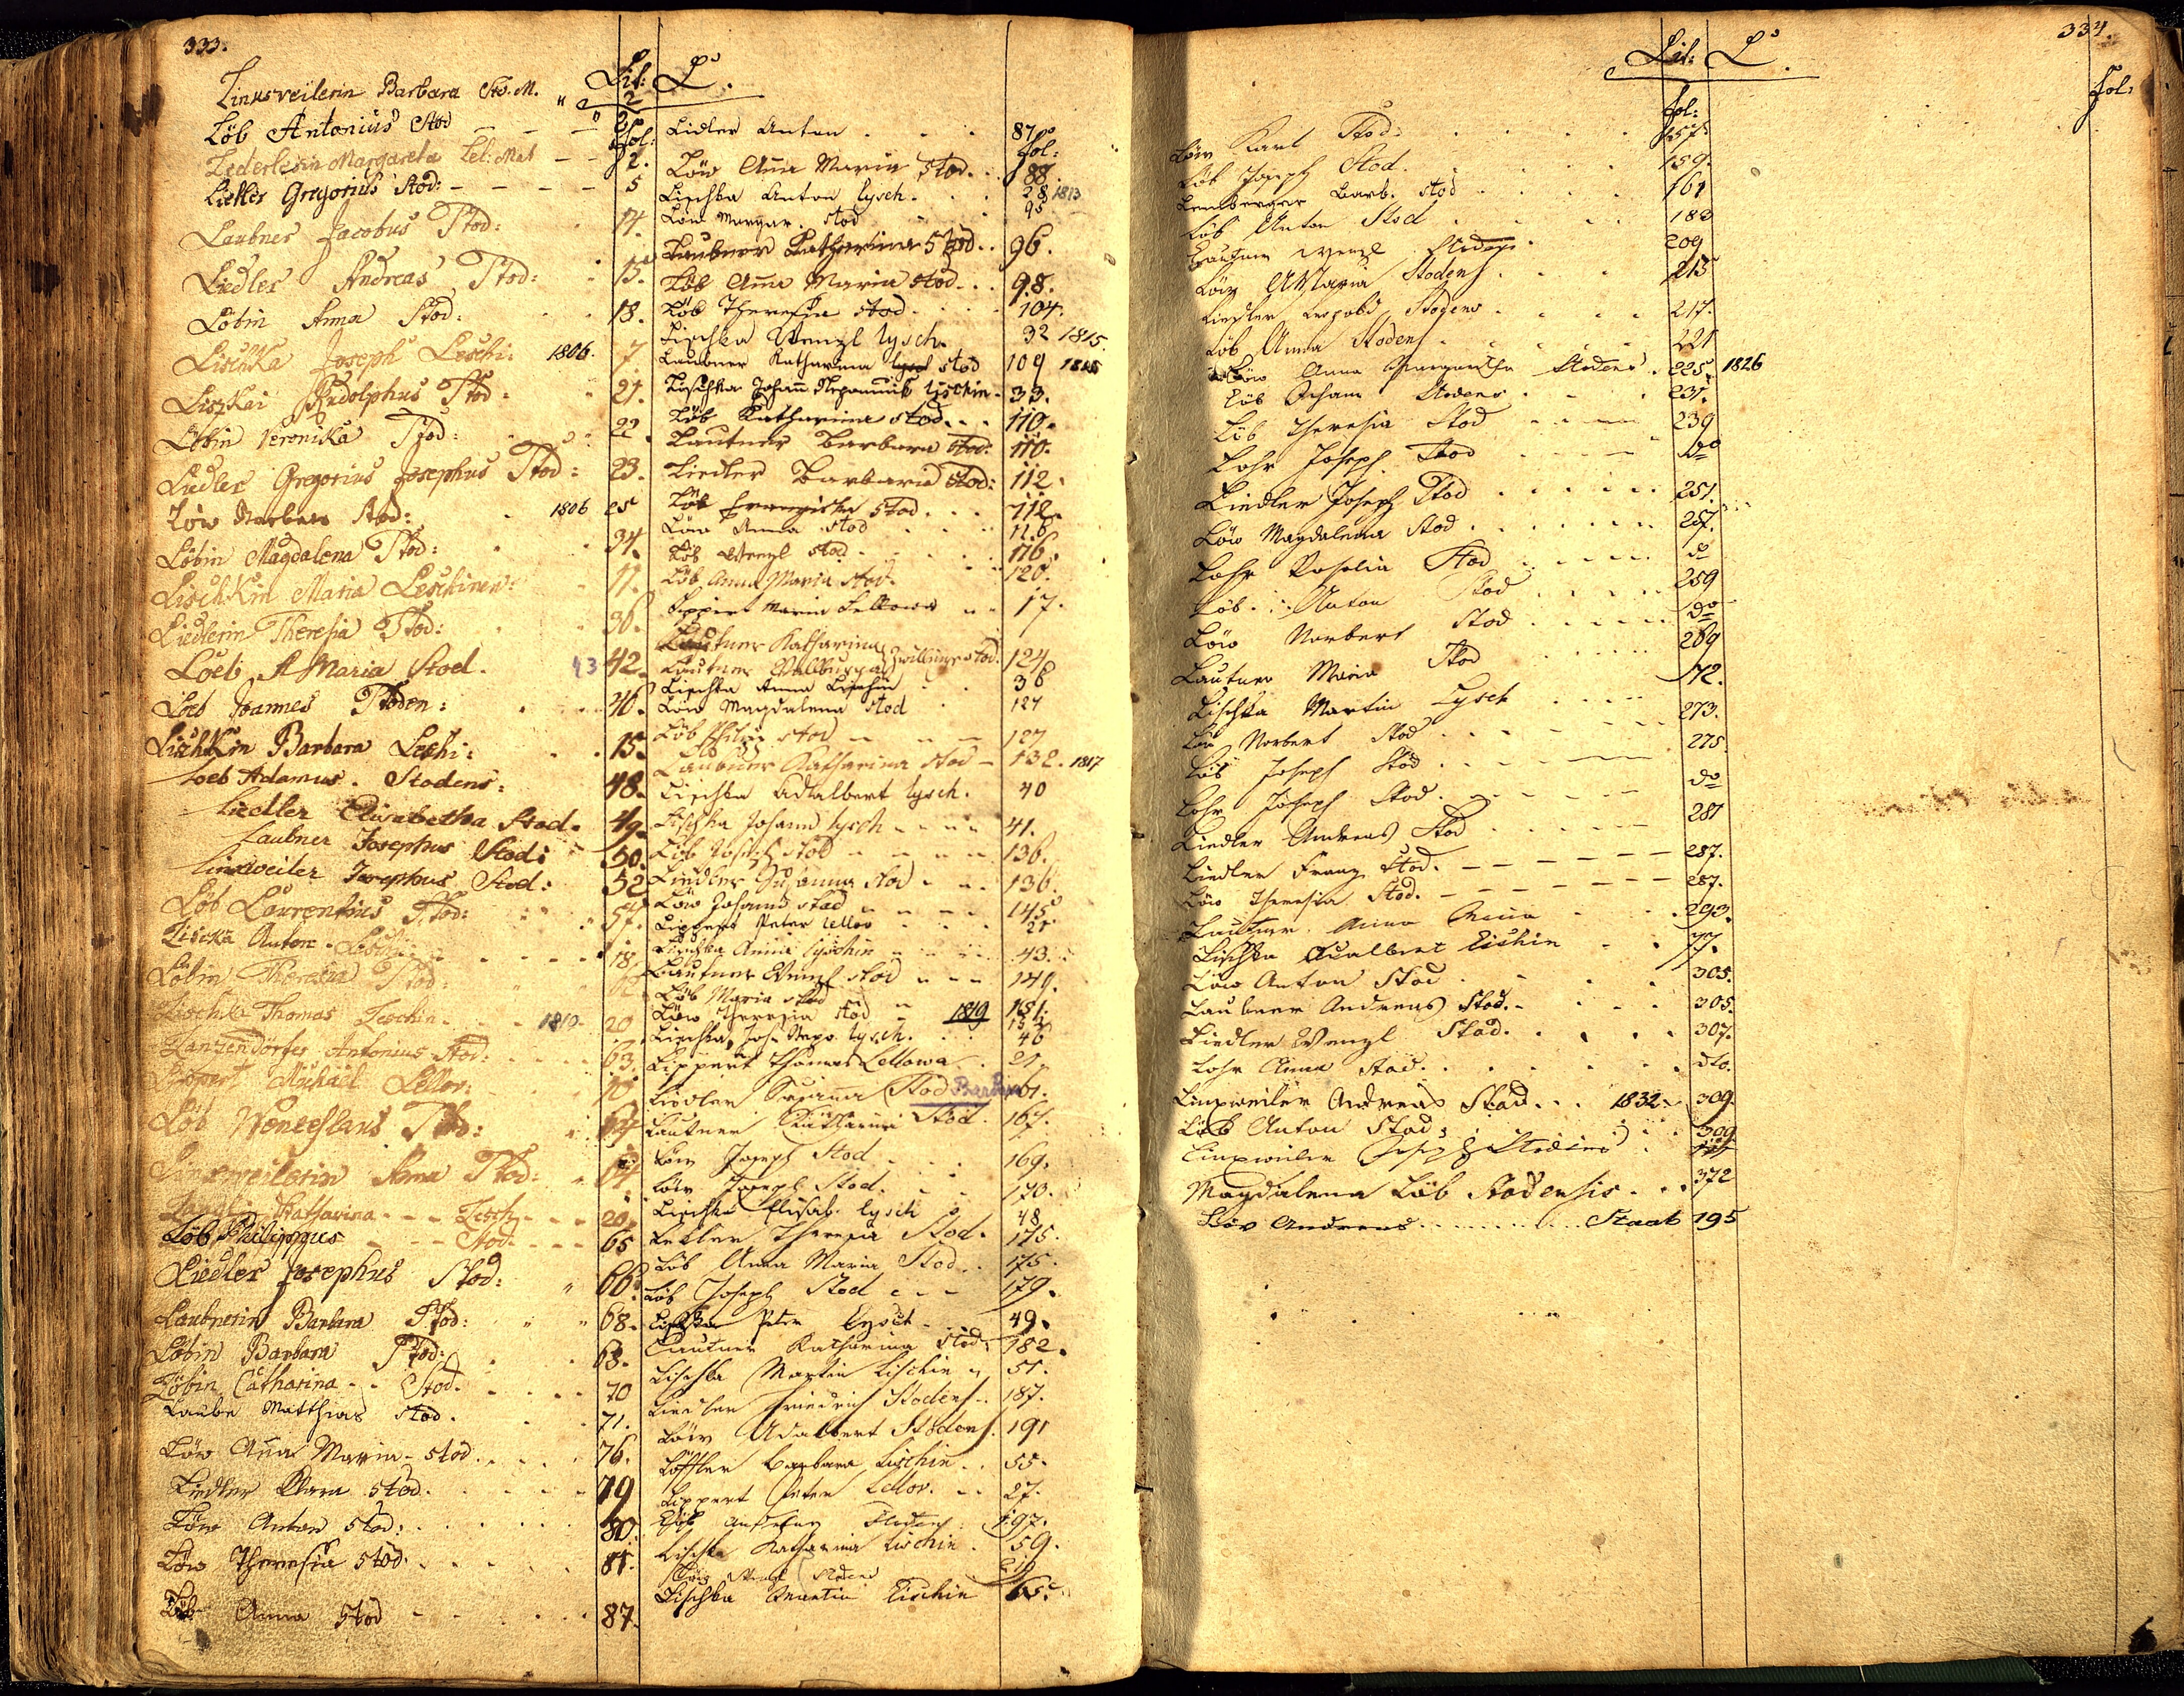 333.
Lit: L.
Linksveilerin Barbara Sto. M. " 2
Löb Antonius Stod — — —
fol:
Lederlerin Margareta Lel: Mat — — 2.
Liekler Gregorius Stod: — — — — 5
Laubner Jacobus Stod: 14.
Liedler Andreas Stod: 15.
Löbin Anna Stod: 18.
Lischka Joseph Leschi: 1806. 7
Liszkai Rudolphus Stod 21.
Löbin Veronika Stod: 22.
Liedler Gregorius Josephus Stod: 23.
Löw Barbara Stod: 1806 25
Löbin Magdalena Stod: 34.
Lischkin Maria Leschinen: 11.
Liedlerin Theresia Stod: 36.
Loeb A Maria Stod. 43 42.
Loeb Joannes Stoden: 46.
Lischkin Barbara Leshi: 15.
Loeb Adamus. Stodens: 48.
Liedler Elisabetha Stod. 49.
Laubner Josephus Stod: 50.
Linxweiler Josephus Stod: 52
Löb Laurentius Stod: 57.
Liscka Anton. 18
Löbin Theresia Stod:
Lischka Thomas Leschin 1810. 20
Lanzendörfer Antonius Stod: 63.
Lippert Michaël Lellov: 10
Löb Wenceslaus Stod:
Linxweilerin Anna Stod:
Katharina - - - Lesch - - - 20.
Löb Philippus — — Stod. — — 65
Liedler Josephus Stod: " 66.
Laubnerin Barbara Stod: " " 68.
Löbin Barbara Stod: 63.
Löbin Catharina - - Stod. 70
Laube Matthias Stod. 71.
Löw Anna Maria - Stod. 76.
Liedler Klara Stod. 79
Löw Anton Stod: 80.
Löw Theresia Stod. 81.
Löb Anna Stod 87.
Lidler Anton 87
fol:
Löw Anna Maria Stod. 88.
Lischka Anton Lysch. 28 1813
Löw Margar. Stod 95
Laubner Katharina Stod. 96.
Löb Anna Maria Stod. 98.
Löb Theresia Stod 104.
Lischka Wenzl Lysch. 32 1815.
Laubner Katharina Stod 109 1815
Lischka Johann Nepomuk Lischin - 33.
Löb Katharina Stod. 110.
Lautner Barbara Stod. 110.
Liedler Barbara Stod: 112.
Löb Franziska Stod. 112.
Löw Anna Stod 116
Löb Wenzl Stod. 116.
Löb Anna Maria Stod. 120.
Lippert Maria Lellowa 17.
Lautner Katharina
Lautner Wallburga Zwillinge Stod. 124
Lischka Anna Lischin 36
Löw Magdalena Stod 127
Löb Philip Stod 127
Laubner Katharina Stod — 132. 1817
Lischka Adalbert Lysch. 40
Lischka Johann Lysch 41.
Löb Joseph Stod 136.
Liedler Susanna Stod 136.
Löw Johann Stod 145
Lippert Peter Lellov 21
Lischka Anna Lischin 43.
Lautner Wenzl Stod 149.
Löb Maria Stod 151.
Löw Theresia Stod 1819
Lischka Joh. Nepo. Lysch. 46
Lippert Thomas Lellowa 21.
Liedler Susanna Stod Barbara 161.
Lautner Katharina Stod. 167.
Löw Joseph Stod 169.
Löw Joseph Stod. 170.
Lischka Elisab. Lysch 48
Lekler Theresia Stod. 175.
Löb Anna Maria Stod. 175.
Löb Joseph Stod 179.
Lischka Peter Lyscht 49.
Lautner Katharina Stod. 182.
Lischka Martin Lischin 51.
Liedler Friedrich Stodens 187.
Löw Adalbert Stodens. 191
Löffler Barbara Lischin 55.
Lippert Peter Lellov. 27.
Löb Stodens 197.
Lischka Katharina Lischin 59.
Löw Stodens
Lischka Martin Lischin 65.
334.
Lit: L.
fol:
fol:
Löw Karl Stod. 157.
Löb Joseph Stod. 159.
Lemberger Barb. Stod 161
Löb Anton Stod 183
Lautner Wenzl 209
Löw A Maria Stodens 213
Liedler Leopold Stodens 217.
Löb Anna Stodens 221
Löw Anna Margaretha Stodens. 225. 1826
Löb Johann Stodens 231.
Löb Theresia Stod 239
Lohr Joseph. Stod do
Liedler Joseph Stod 251.
Löw Magdalena Stod 257.
Lohr Rosalia Stod do
Löb Anton Stod 259
Löw Norbert Stod do
Lautner Maria Stod 269
Lischka Martin Lysch 72.
Löw Norbert Stod 273.
Löb Joseph Stod 275.
Lohr Joseph Stod. do
Liedler Andreas Stod 281
Liedler Franz Stod. 287.
Löw Theresia Stod. 287.
Lautner Anna Maria 293.
Lischka Adalbert Lischin 77.
Löw Anton Stod 305.
Laubner Andreas Stod. 305.
Liedler Wenzl Stod. 307.
Lohr Anna Stod. dto.
Linxweiler Andreas Stod. 1832. 309.
Löb Anton Stod. 309
Linxweiler Joseph Stodens
Magdalena Löb Stodensis 372
Löw Andreas Staab 195